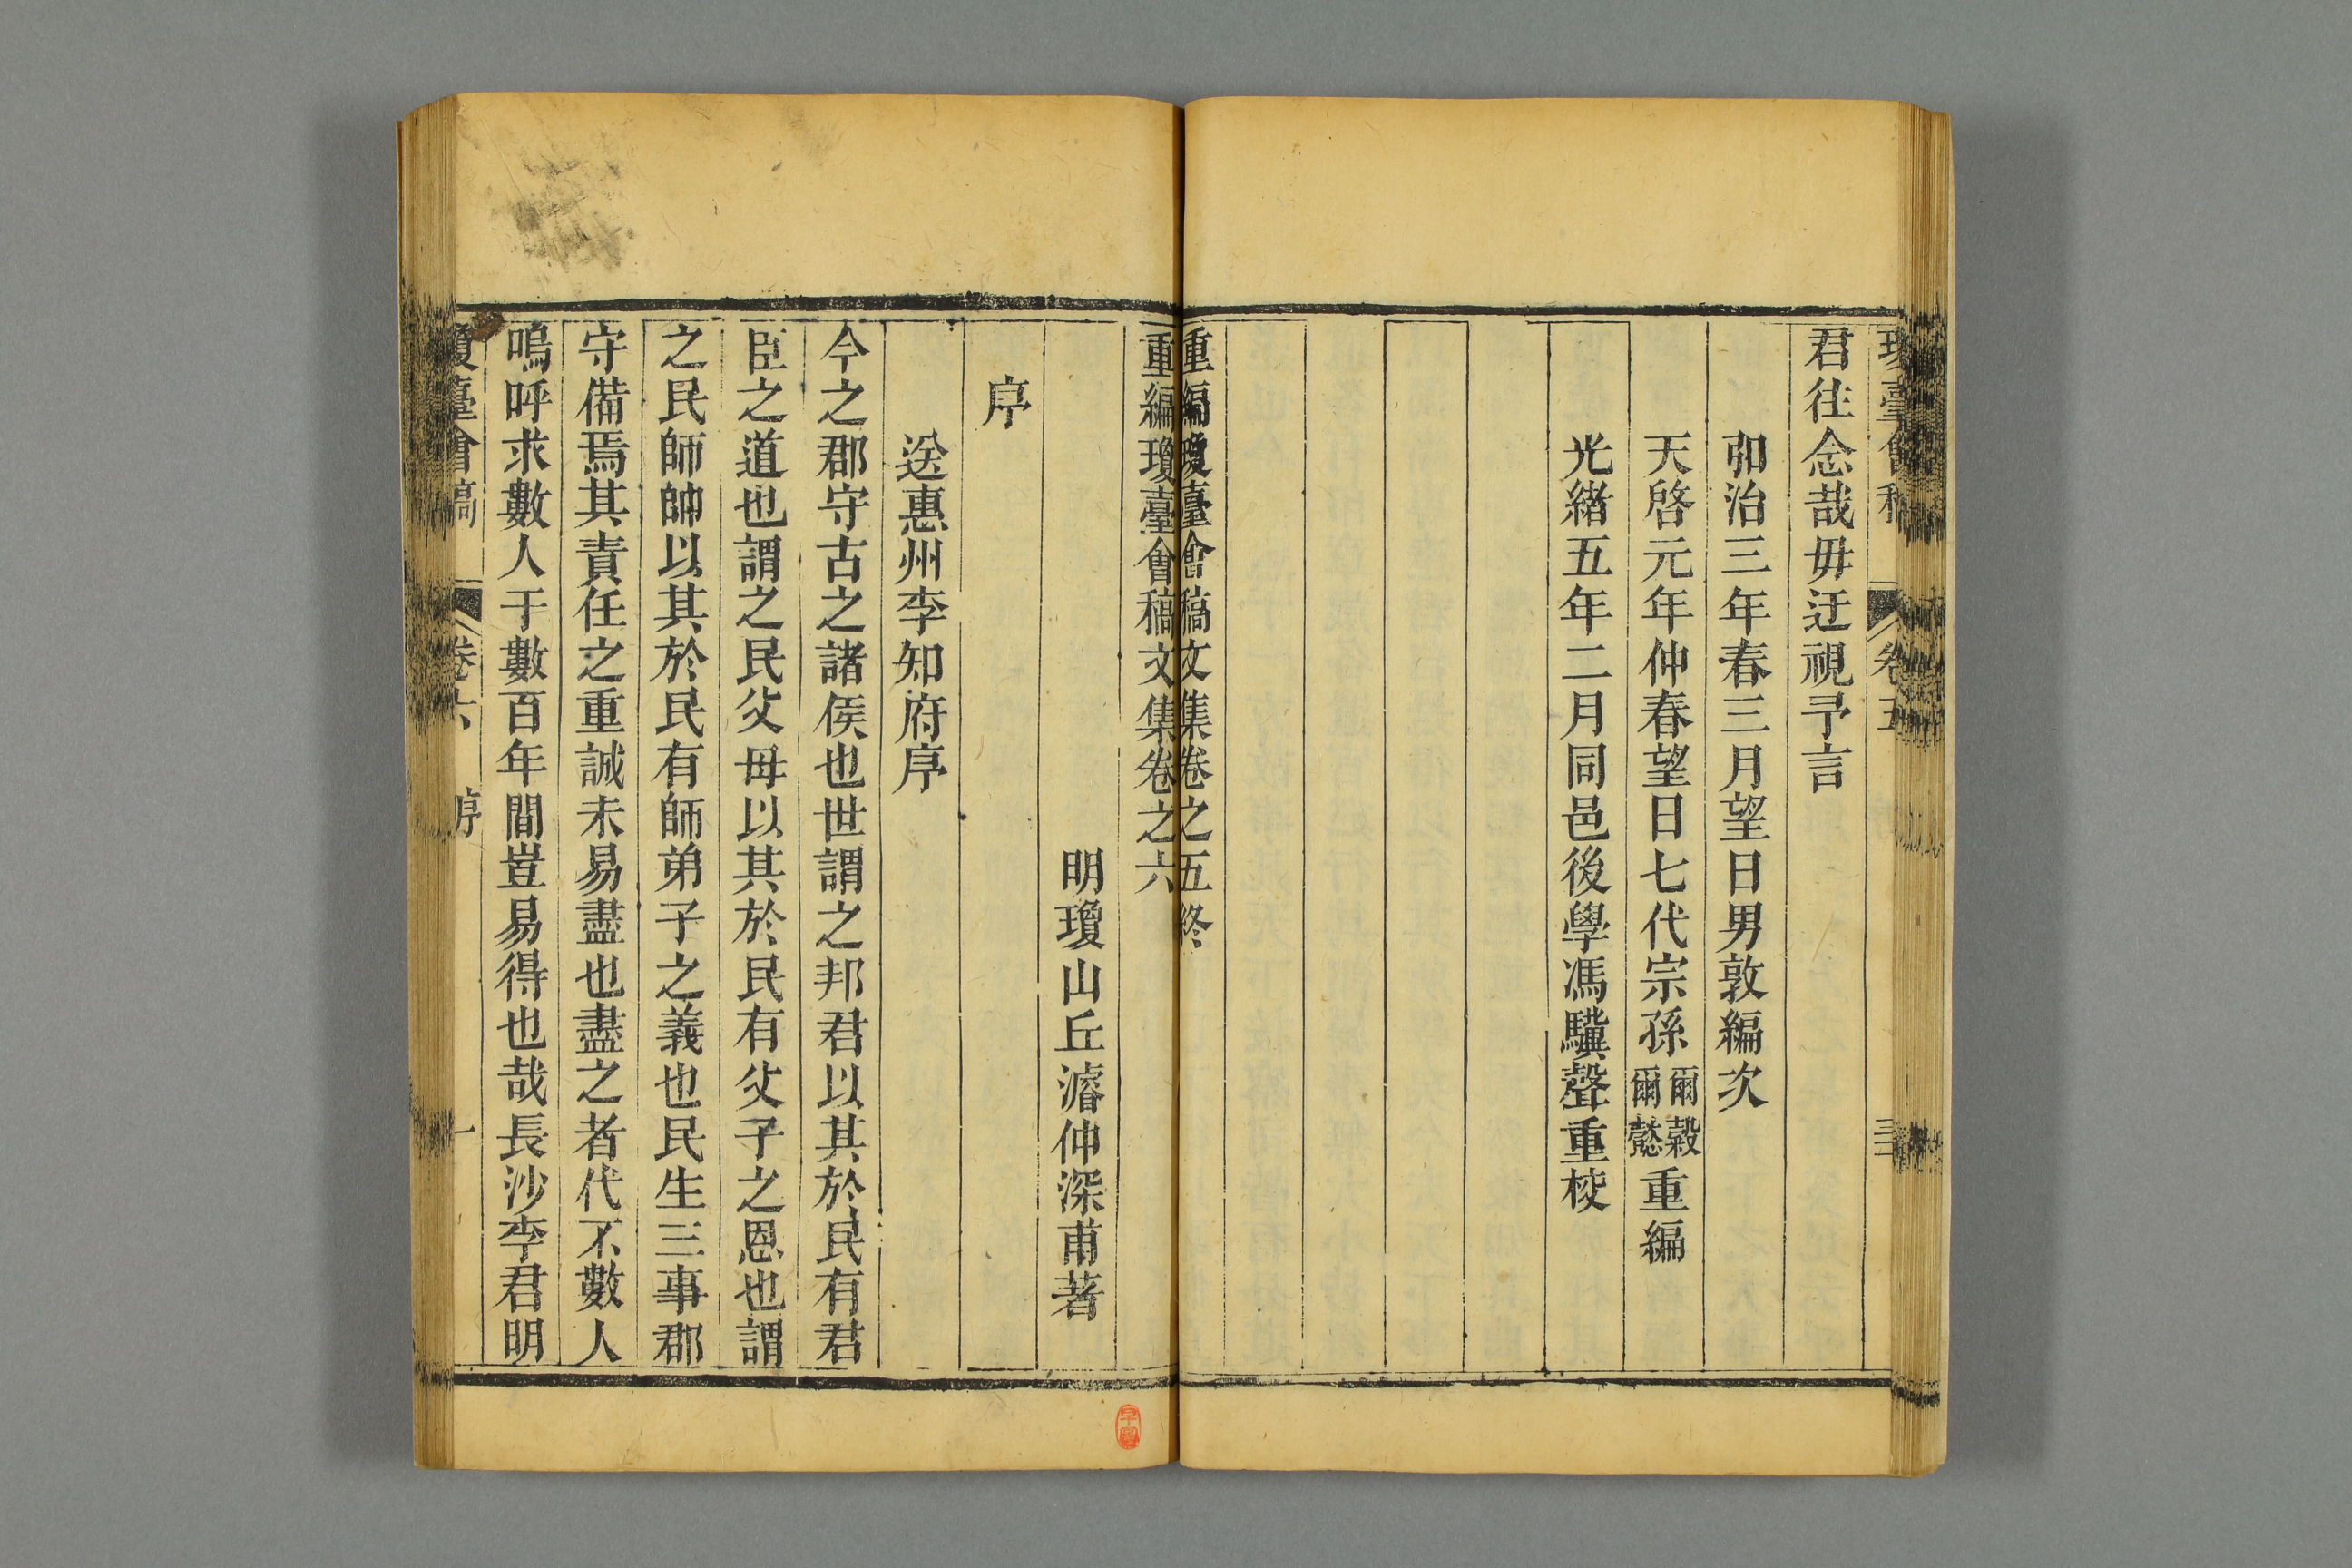 君往念哉毋迂視予言
弘治三年春三月望日男敦編次
天啓元年仲春望日七代宗孫爾穀爾懿重編
光緒五年二月同邑後學馮驥聲重校
重編瓊臺會稿文集卷之五終
重編瓊臺會稿文集卷之六
明瓊山丘濬仲深甫著
序
送惠州李知府序
今之郡守古之諸侯也世謂之邦君以其於民有君
臣之道也謂之民父母以其於民有父子之恩也謂
之民師帥以其於民有師弟子之義也民生三事郡
守備焉其責任之重誠未易盡也盡之者代不數人
嗚呼求數人于數百年間豈易得也哉長沙李君明
瓊臺會稿 卷六 序 一